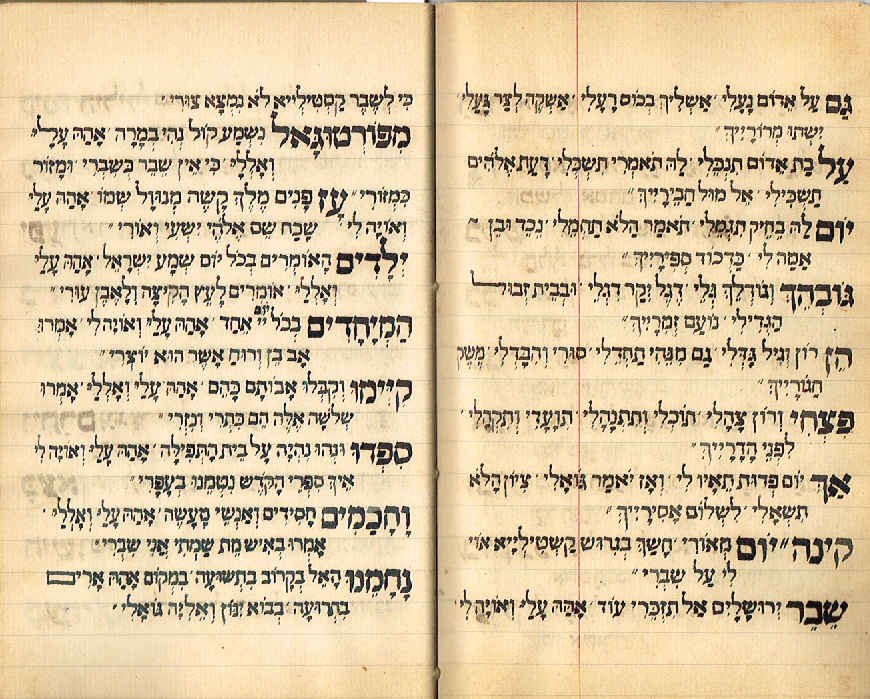 גַּם עַל אֱדוֹם נָעָלִי ׳ אַשְׁלִיךְ בְּכוֹס רָעָלִי ׳ אַשְׁקֶה לְצַר גָּעָלִי ׳
יִשְׁתּוּ מְרוֹרַיִיךְ ״
עַל בַּת אֱדוֹם תְּנַכְּלִי ׳ לָהּ תֹאמְרִי תְּשַׁכְּלִי ׳ דַּעַת אֱלֹהִים
תַּשְׂכִּילִי ׳ אֶל מוּל חֲבֵירַיִיךְ ״
יוֹם לָהּ בְּחֵיק תִּגְמְלִי ׳ תֹּאמַר הֲלֹא תַחְמְלִי ׳ נֶכֶד וּבֶן ~
אָמָה לִי ׳ כַּדְכוֹד סְפִירַיִיךְ ״
גּוֹבְהֵךְ וְגוֹדְלֵךְ גְּלִי ׳ דֶּגֶל יְקָר דִּגְלִי ׳ וּבְבֵית זְבוּל
הַגְדִּילִי ׳ נוֹעַם זְמָרַיִיךְ ״
הֵן רוֹן וְגִיל גַּדְּלִי ׳ גַּם מִנְּהִי תֶחְדְּלִי ׳ סוּרִי וְהִבָּדְלִי ׳
תְּגוֹרַיִיךְ ״
פִּצְחִי וְרוֹן צַהֲלִי ׳ תּוּכְלִי וְתִתְנַהֲלִי ׳ תִוָּעֲדִי וְתִקָּהֲלִי ׳
לִפְנֵי הֲדָרַיִיךְ ״
אַךְ יוֹם פְּדוּת תְּאַיוּ לִי ׳ וְאָז יֹאמַר גּוֹאֲלִי ׳ צִיּוֹן הֲלֹא
תִשְׁאֲלִי ׳ לִשְׁלוֹם אֲסִירַיִיךְ ״
קִינָה ״ יוֹם מְאוֹרִי ׳ חָשַׁךְ בְּגֵרוּשׁ קַשְׁטִילְיָיא אוֹי
לִי עַל שִׁבְרִי ״
שֶׁבֶר יְרוּשָׁלַיִם אַל תִּזְכְּרִי עוֹד ׳ אֲהָהּ עָלַי ׳ וְאוֹיָה לִי ׳
כִּי לְשֶׁבֶר קַסְטִילְיָיא לֹא נִמְצָא צוּרִי ״
מִפּוֹרְטוּגָאל נִשְׁמַע קוֹל נְהִי בְּמָרָה ׳ אֲהָהּ עָלַי
וְאָלְלַי ׳ כִּי אֵין שֶׁבֶר כְּשִׁבְרִי ׳ וּמָזוֹר
כִּמְזוֹרִי ״ עַז פָּנִים מֶלֶךְ קָשֶׁה מְנוּוָל שְׁמוֹ ׳ אֲהָהּ עָלַי
וְאוֹיָה לִי ׳ שָׁכַח שֵׁם אֱלֹהֵי יִשְׁעִי וְאוֹרִי ״
יְלָדִים הָאוֹמְרִים בְּכֹל יוֹם שְׁמַע יִשְׂרָאֵל ׳ אֲהָהּ עָלַי
וְאָלְלַי ׳ אוֹמְרִים לָעֵץ הָקִיצָה וְלָאֶבֶן עוּרִי ״
הַמְיַחֲדִים בְּכֹל יוֹם יי אֶחָד ׳ אֲהָהּ עָלַי וְאוֹיָה לִי ׳ אָמְרוּ
אָב בֵּן וְרוּחַ אֲשֶׁר הוּא יוֹצְרִי ״
קִיְּימוּ וְקִבְּלוּ אֲבוֹתָם כָּהֵם ׳ אֲהָהּ עָלַי וְאָלְלַי ׳ אָמְרוּ
שְׁלֹשָׁה אֵלֶּה הֵם כִּתְרִי וְנִזְרִי ״
סִפְדוּ וּנְהוּ נִהְיָה עַל בֵּית הַתְּפִילָּה ׳ אֲהָהּ עָלַי וְאוֹיָה לִי
אֵיךְ סִפְרֵי הַקֹּדֶשׁ נִטְמְנוּ בְּעָפְרִי ״
וַחֲכָמִים חֲסִידִים וְאַנְשֵׁי מַעֲשֶׂה ׳ אֲהָהּ עָלַי וְאָלְלַי ׳
אָמְרוּ בְּאִישׁ מֵת שַׂמְתִּי אֲנִי שִׂבְרִי ״
נַחֲמֵנוּ הָאֵל בְּקָרוֹב בִּתְשׁוּעָה ׳ בִּמְקוֹם אֲהָהּ אָרִים
בִּתְרוּעָה ׳ בְּבוֹא יִנּוֹן וְאֵלִיָּה גּוֹאֲלִי ׳